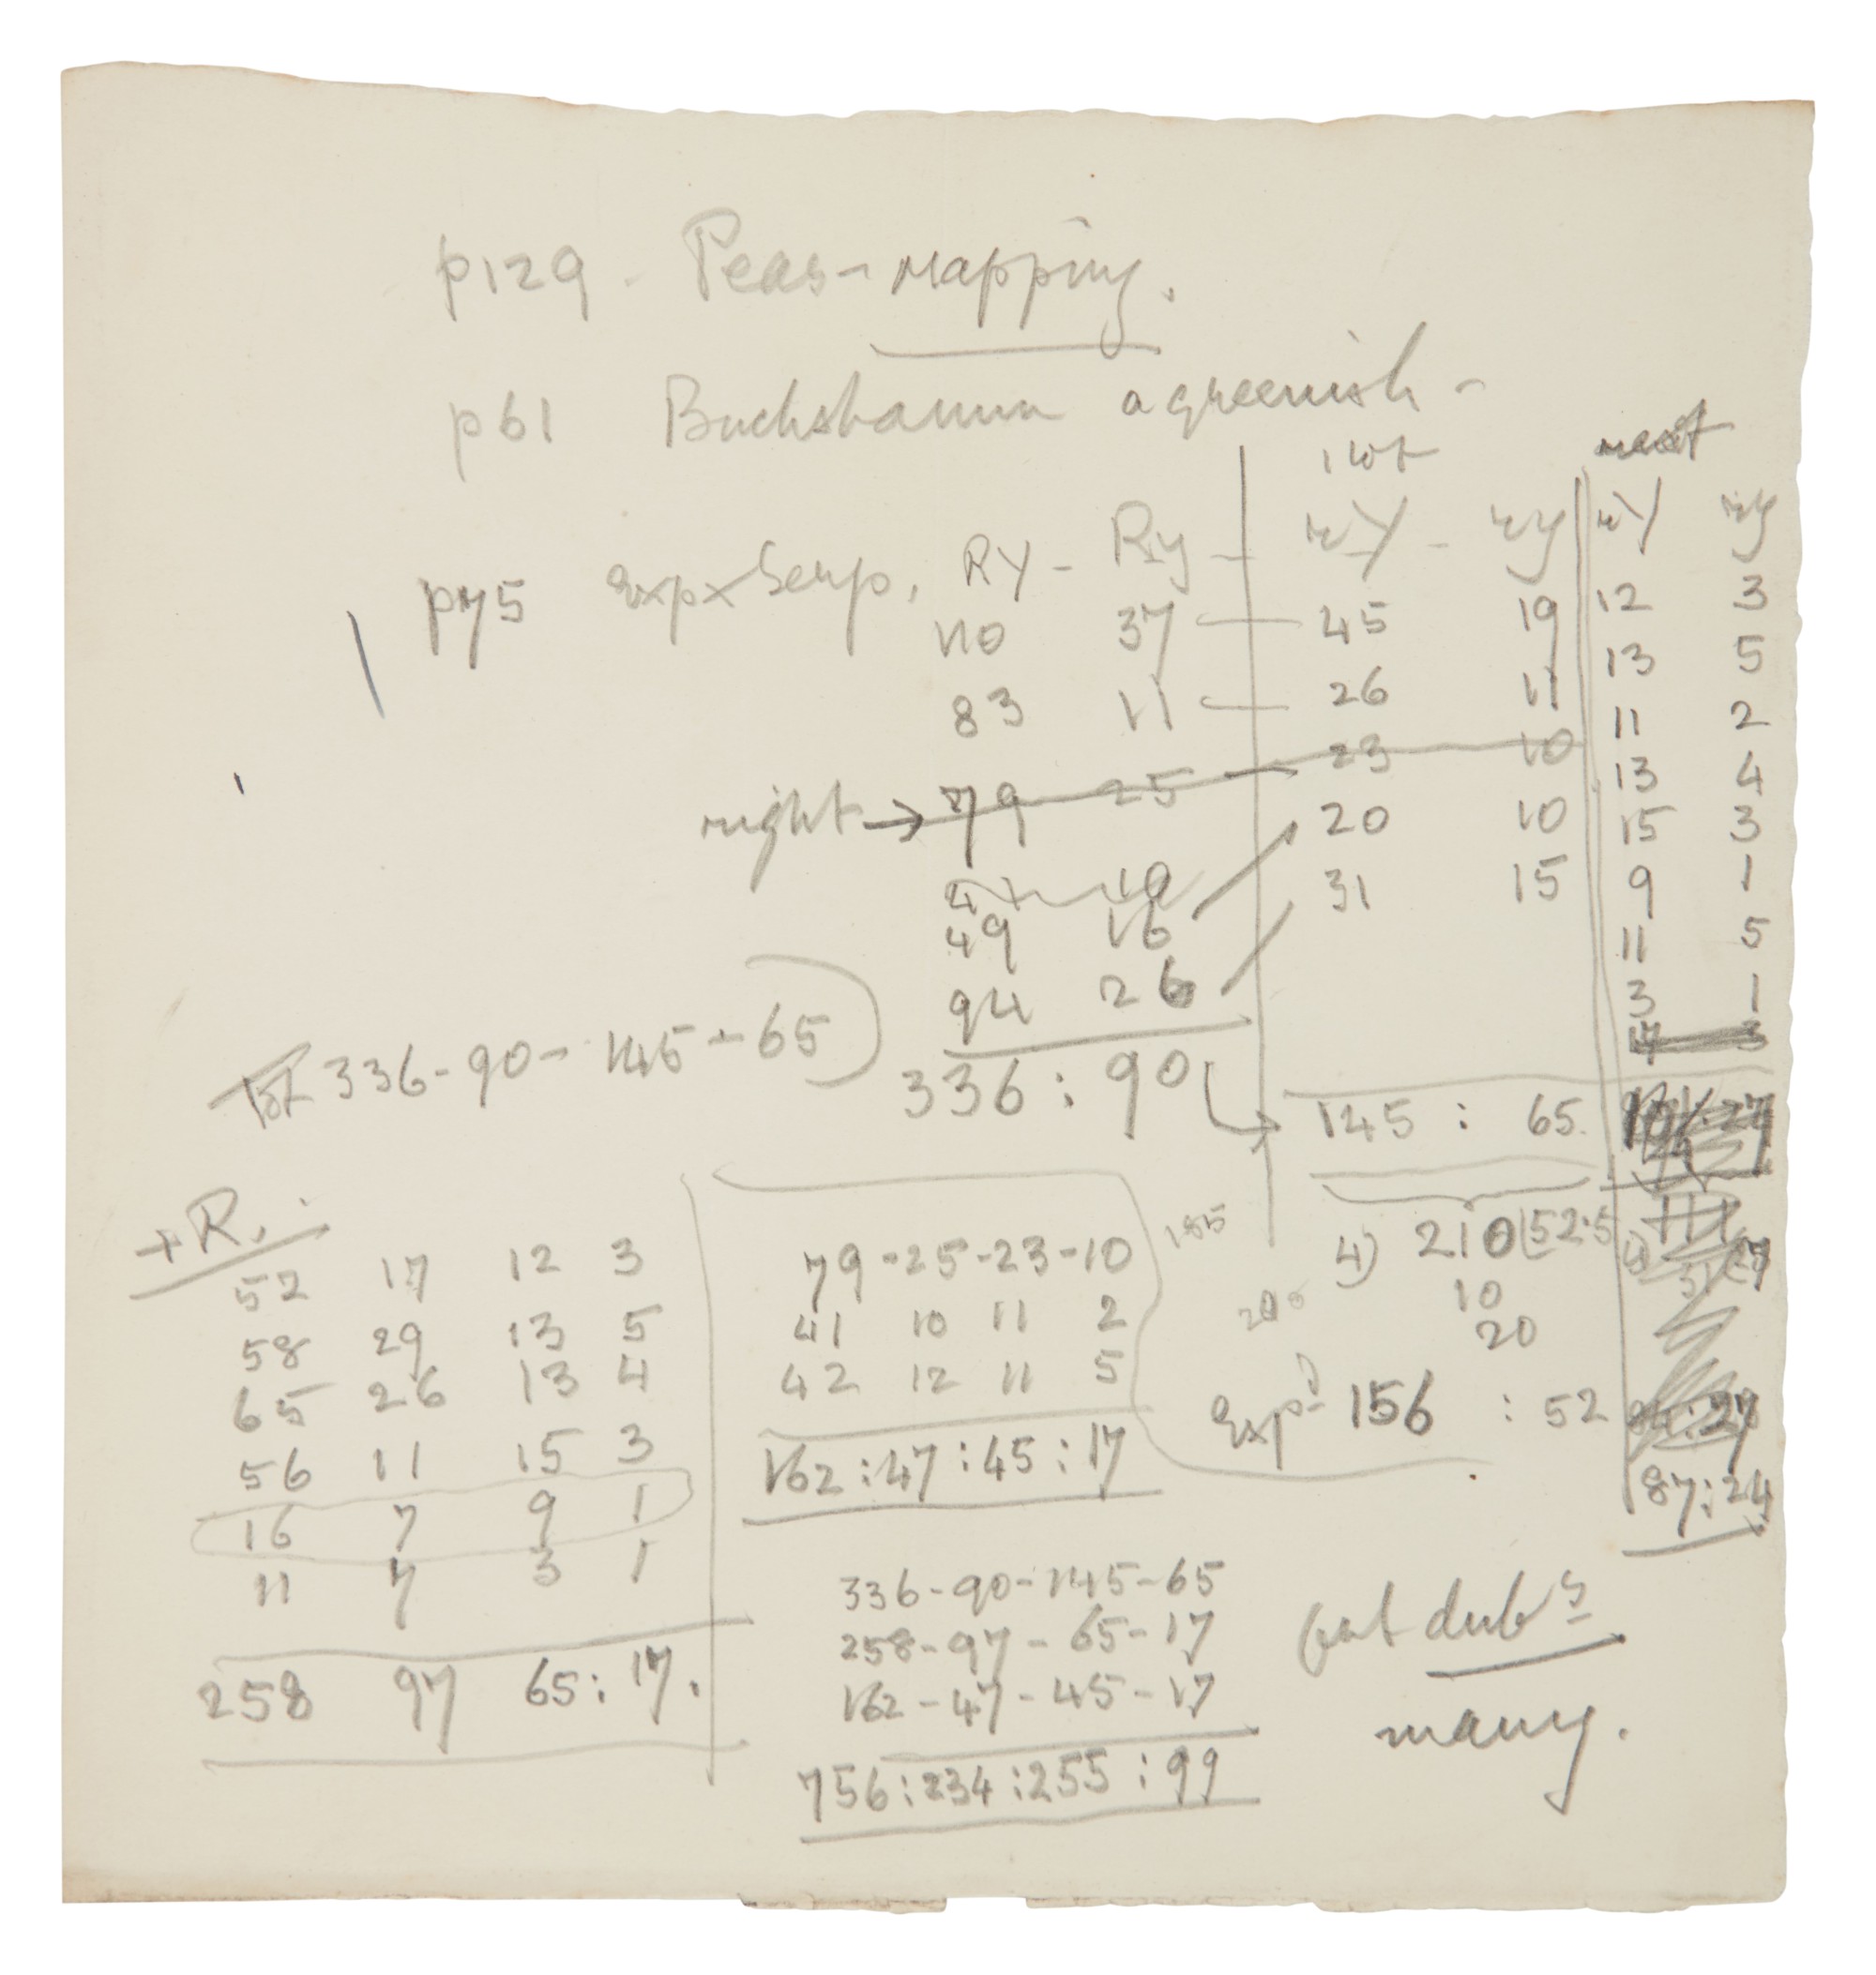 p129 - Peas - mapping.
p61 Buchsbaum a greenish -
1 wt next
p75 Exp x Serp. RY - Ry - rY - ry rY ry
110 37 45 19 12 3
83 11 26 11 13 5
right → 79 25 23 10 11 2
20 10 13 4
49 16 31 15 15 3
94 26 9 1
11 5
3 1
Tot 336 - 90 - 145 - 65
336 : 90 145 : 65
+ R.
52 17 12 3
58 29 13 5
65 26 13 4
56 11 15 3
16 7 9 1
11 7 3 1
258 97 65 : 17.
79 - 25 - 23 - 10
41 10 11 2
42 12 11 5
162 : 47 : 45 : 17
4) 210 (52.5
10
20
Expd 156 : 52
87 : 24
336 - 90 - 145 - 65
258 - 97 - 65 - 17
162 - 47 - 45 - 17
756 : 234 : 255 : 99
but dubs
many.